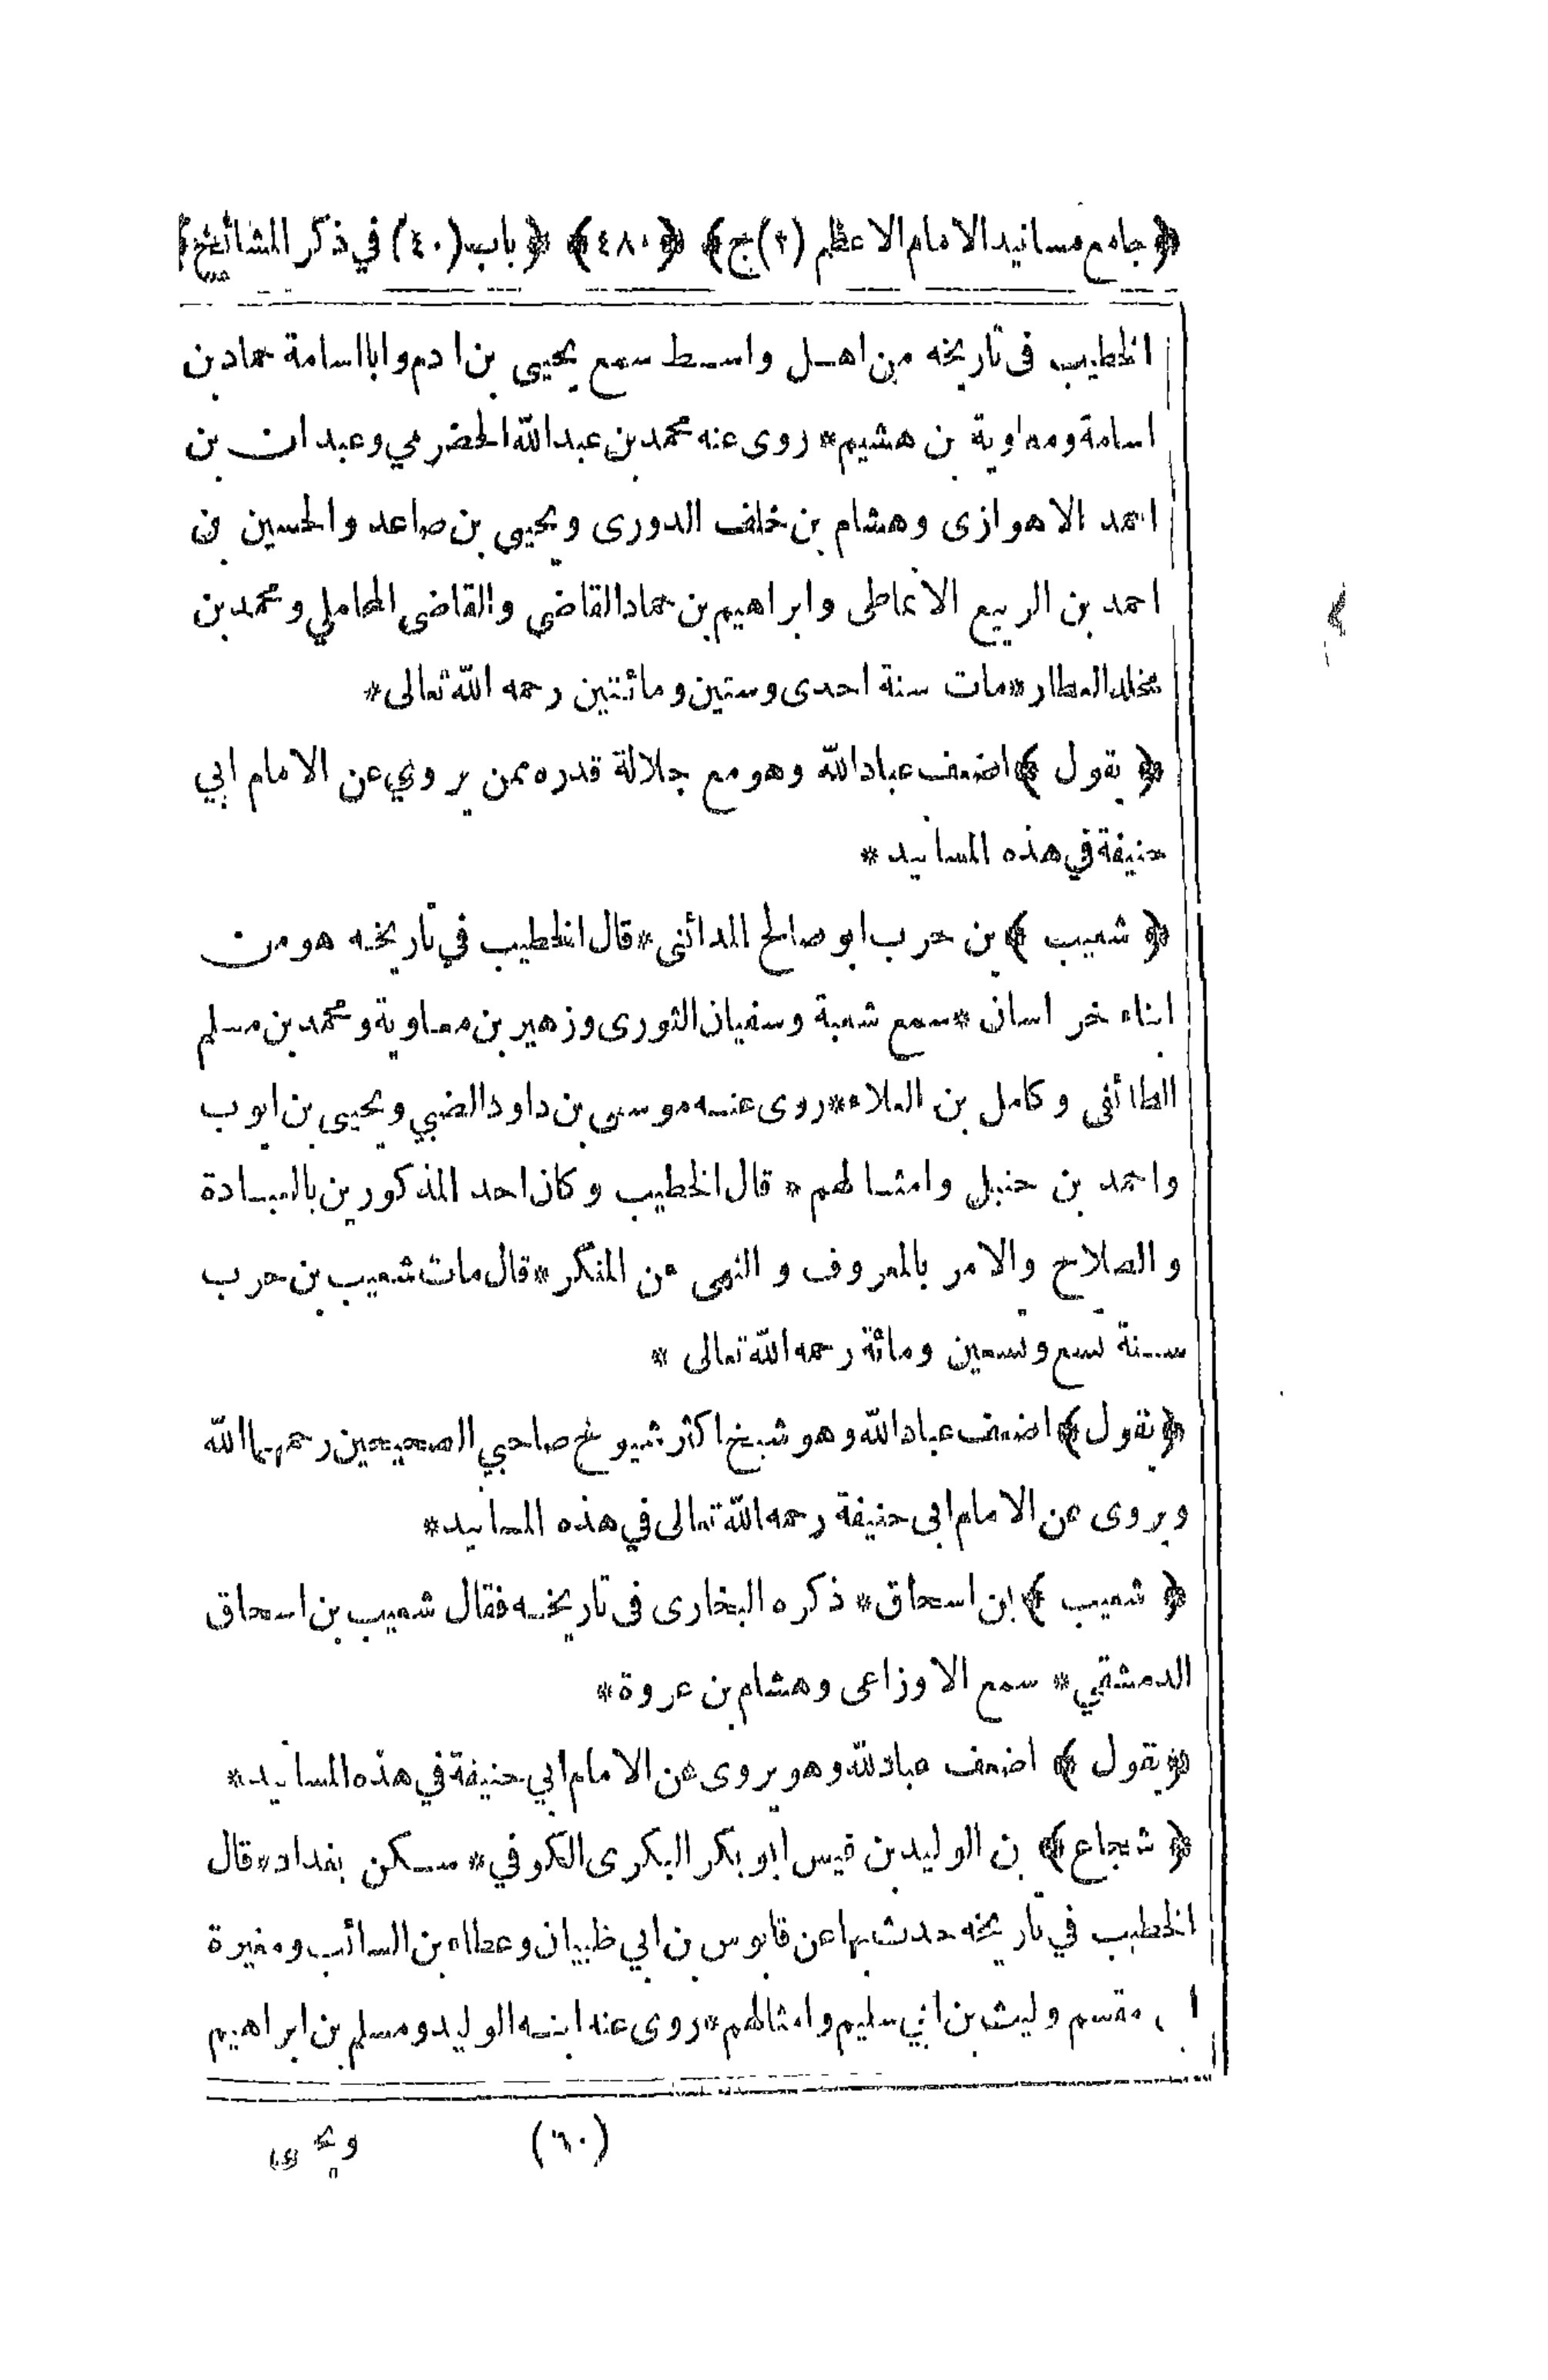 ﴿ جامع مسانيد الامام الاعظم (٢) ج ﴾ ﴿ ٤٨٠ ﴾ ﴿ باب (٤٠) في ذكر المشائخ ﴾
الخطيب فى تاريخه من اهل واسط سمع يحيى بن ادم وابا اسامة حماد بن
اسامة ومعاوية بن هشيم * روى عنه محمد بن عبد الله الحضرمي وعبدان بن
احمد الاهوازى وهشام بن خلف الدورى ويحيى بن صاعد والحسين بن
احمد بن الربيع الانماطى وابراهيم بن حماد القاضي والقاضى المحاملي ومحمد بن
مخلد العطار * مات سنة احدى وستين ومائتين رحمه الله تعالى *
﴿ يقول ﴾ اضعف عباد الله وهو مع جلالة قدره ممن يروي عن الامام ابي
حنيفة في هذه المسانيد *
﴿ شعيب ﴾ بن حرب ابو صالح المدائنى * قال الخطيب في تاريخه هو من
ابناء خراسان * سمع شعبة وسفيان الثورى وزهير بن معاوية ومحمد بن مسلم
الطائفى وكامل بن العلاء * روى عنه موسى بن داود الضبي ويحيى بن ايوب
واحمد بن حنبل وامثالهم * قال الخطيب وكان احد المذكورين بالعبادة
والصلاح والامر بالمعروف والنهى عن المنكر * قال مات شعيب بن حرب
سنة تسع وتسعين ومائة رحمه الله تعالى *
﴿ يقول ﴾ اضعف عباد الله وهو شيخ اكثر شيوخ صاحبي الصحيحين رحمهما الله
ويروى عن الامام ابى حنيفة رحمه الله تعالى في هذه المسانيد *
﴿ شعيب ﴾ بن اسحاق * ذكره البخارى فى تاريخه فقال شعيب بن اسحاق
الدمشقي * سمع الاوزاعى وهشام بن عروة *
﴿ يقول ﴾ اضعف عباد لله وهو يروى عن الامام ابي حنيفة في هذه المسانيد *
﴿ شجاع ﴾ بن الوليد بن قيس ابو بكر البكرى الكوفي * سكن بغداد * قال
الخطيب في تاريخه حدث بها عن قابوس بن ابي ظبيان وعطاء بن السائب ومغيرة
مقسم وليث بن ابي سليم وامثالهم * روى عنه ابنه الوليد ومسلم بن ابراهيم
(٦٠) ويحيى